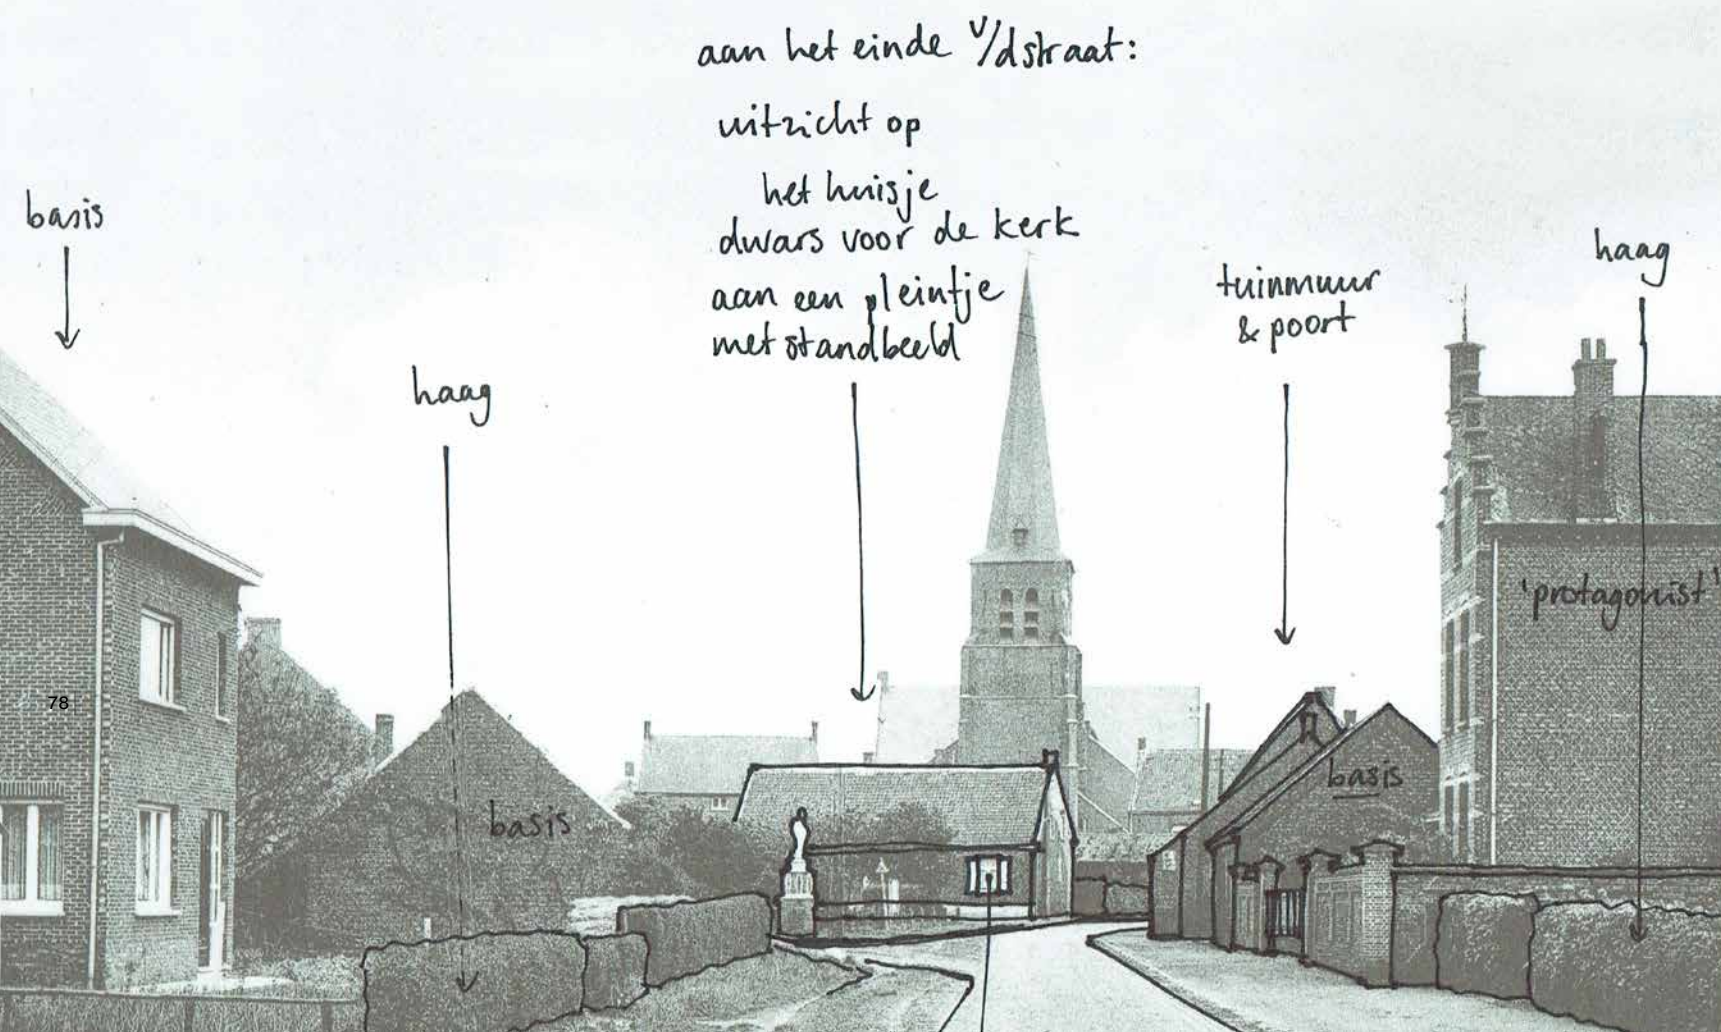 aan het einde v/d straat:
uitzicht op
het huisje
dwars voor de kerk
aan een pleintje
met standbeeld
basis
haag
tuinmuur
& poort
haag
'protagonist'
78
basis
basis